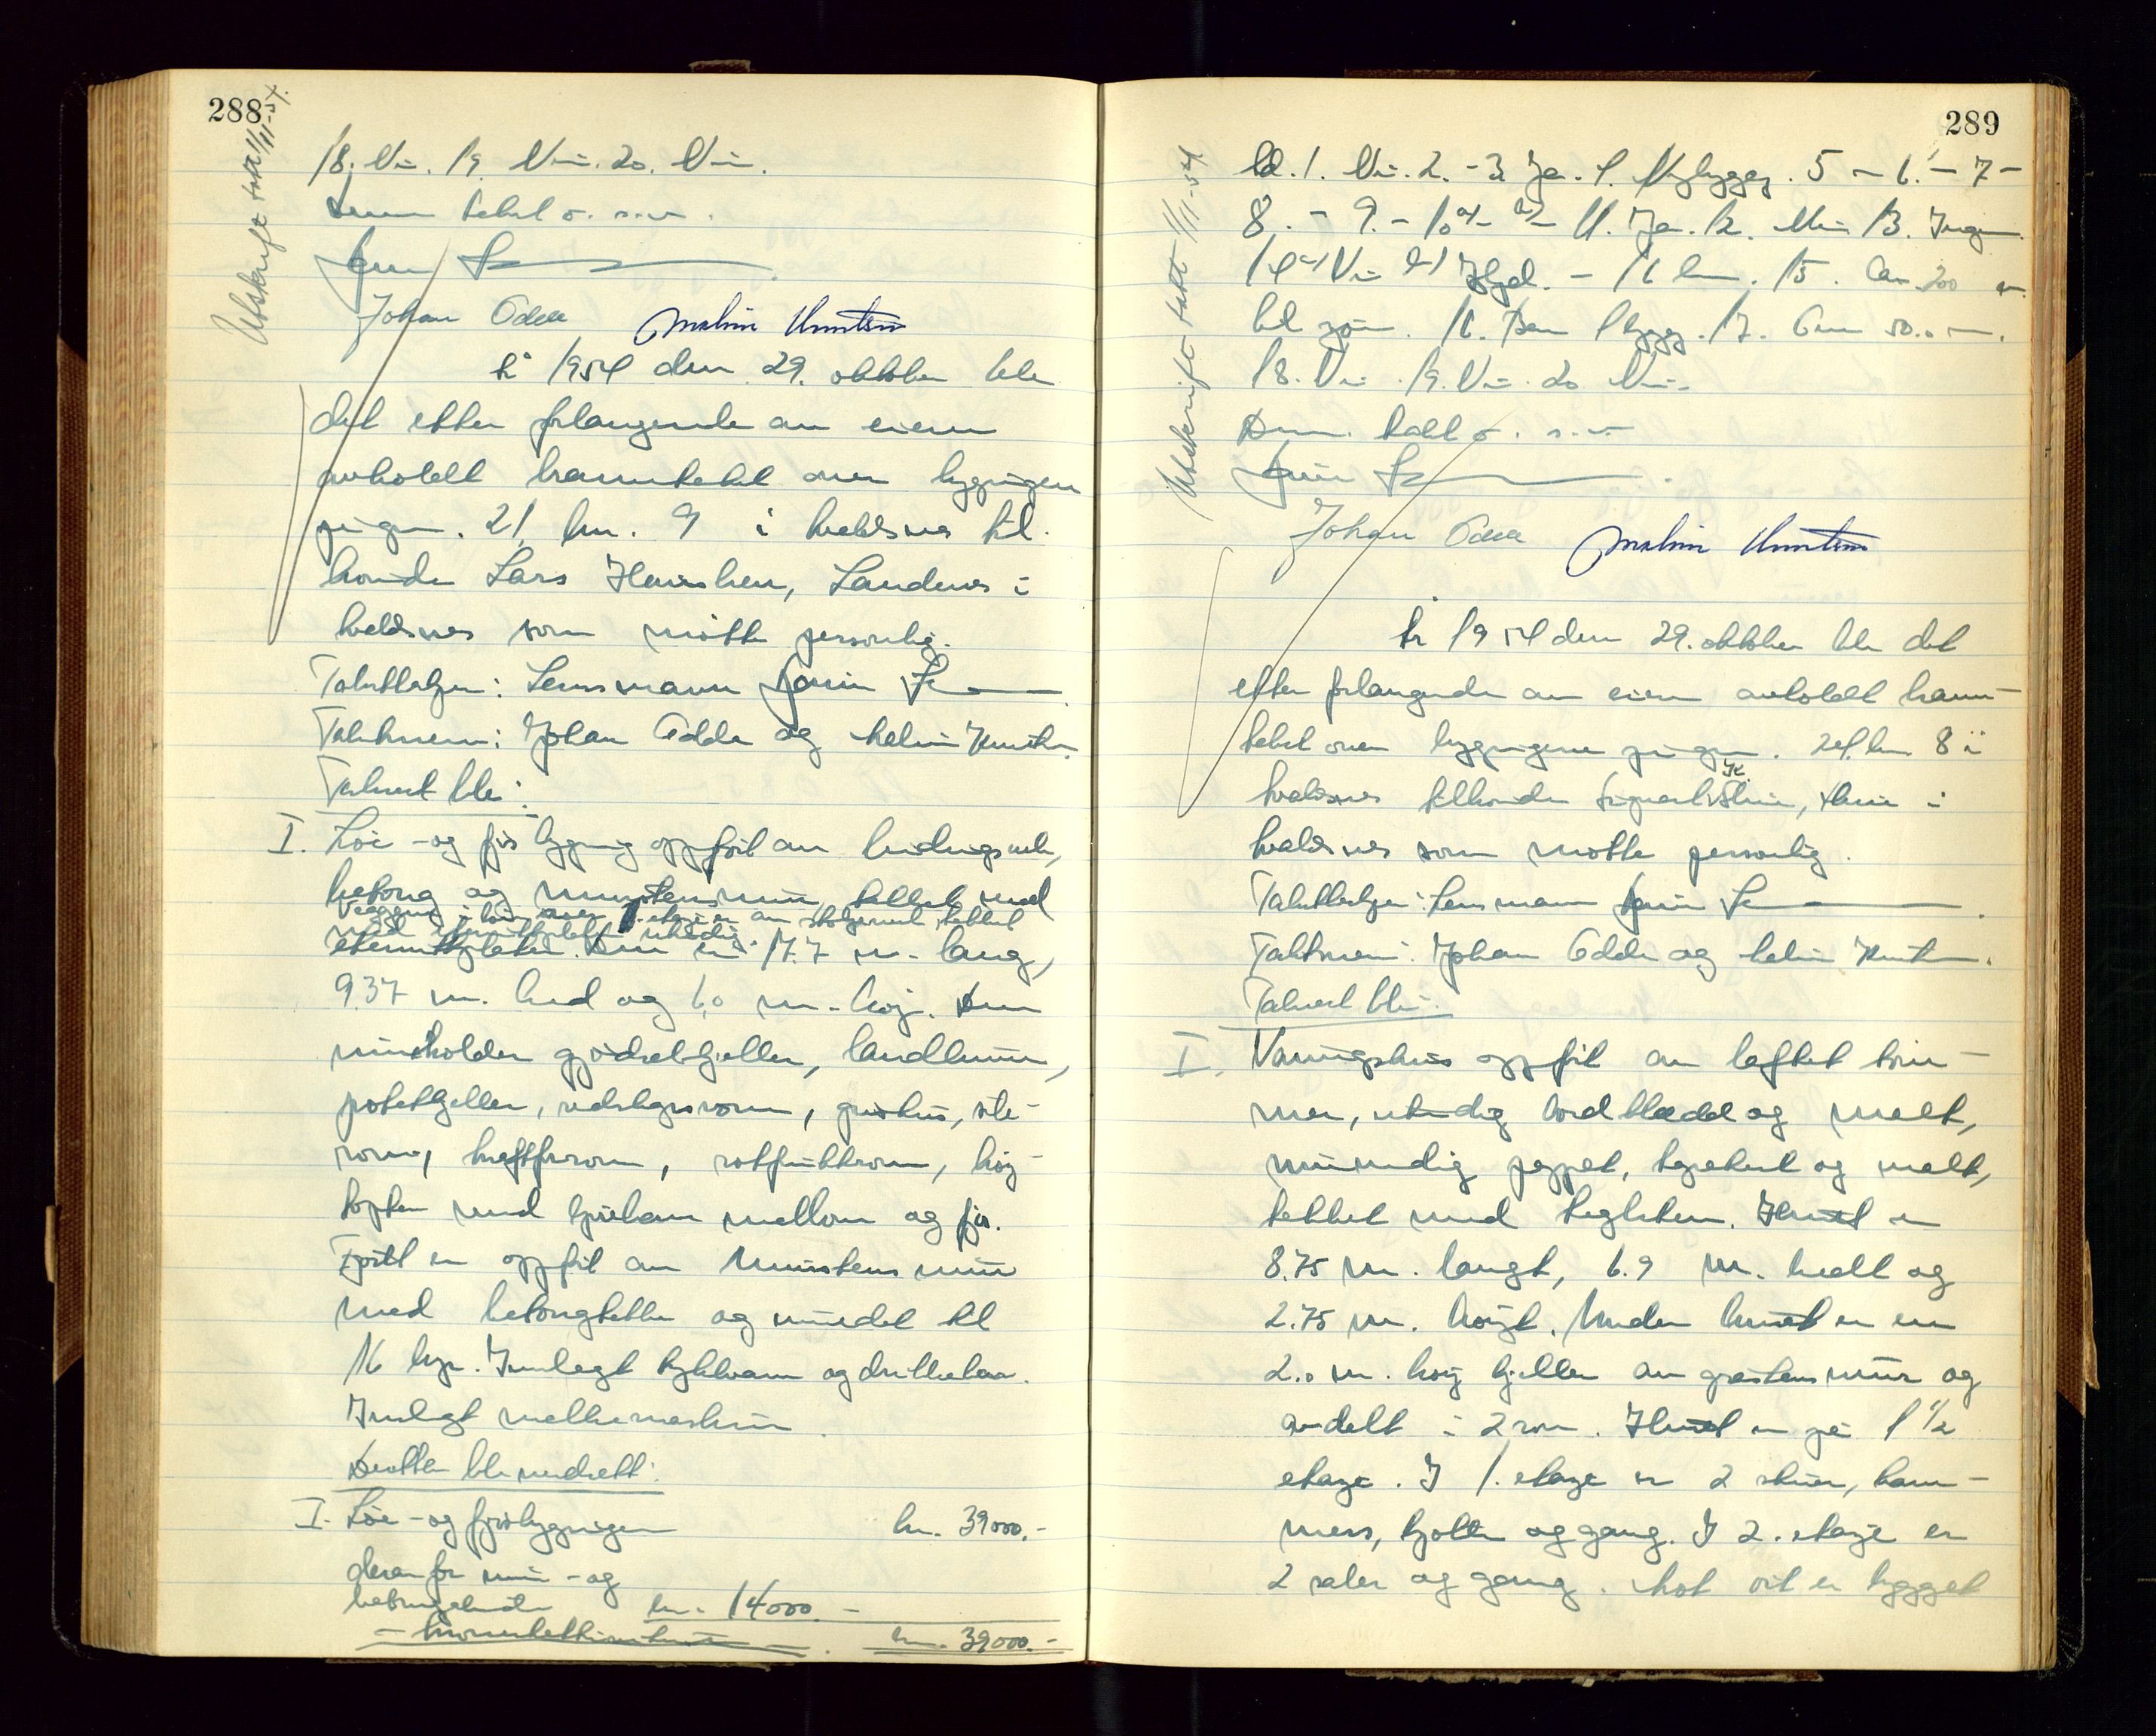 288
Utskrift tatt 1/11-54.
18. Nei. 19. Nei. 20. Nei.
Denne takst o. s. v.
Johan Odde Malvin Knutsen
År 1954 den 29. oktober ble
det etter forlangende av eieren
avholdt branntakst over bygningen
på gnr. 21, bnr. 9 i Kvalsnes til-
Lars Henriksen, Sandenes i
Kvalsnes som møtte personlig.
Takstbestyrer: Lensmann
Takstmenn: Johan Odde og Malvin Knutsen.
Taksert ble:
I. Løe- og fjøsbygning oppført av bindingsverk,
betong og murstensmur, tekket med
Veggene i løen over 1. etasje er av stolpeverk tekket
med eternittplater utvendig.
eternittplater. Den er 17.7 m. lang,
9.37 m. bred og 6.0 m. høy. Den
inneholder gjødselkjeller, landkum,
potetkjeller, redskapsrom, grishus, silo-
rom, kraftforrom, rotfruktrom, høy-
med kjørebane mellom og fjøs.
Fjøset er oppført av murstens mur
med betongdekke og innredet til
16 kyr. Innlagt trykkvann og drikkekar.
Innlagt melkemaskin.
Deretter ble verdsatt:
I. Løe- og fjøsbygningen kr. 39000.-
derav for mur- og
betongarbeide kr. 14000.-
kr. 39000.-
289
Utskrift tatt 1/11-54
Ad. 1. Nei. 2. - 3. Ja. 4. Nybygg. 5 - 6. - 7 -
8. - 9. - 10 a) - b) - 11. Ja. 12. Nei 13. Ingen.
14 a) Nei b) - 16 km. 15. Ca. 200 m.
til sjøen. 16. 17. Over 50.0 m.
18. Nei. 19. Nei. 20. Nei.
Denne takst o. s. v.
Johan Odde Malvin Knutsen
År 1954 den 29. oktober ble det
etter forlangende av eieren avholdt brann-
takst over bygningene på gnr. 24, bnr. 8 i
Kvalsnes tilhørende i
Kvalsnes som møtte personlig.
Takstbestyrer: Lensmann
Takstmenn: Johan Odde og Malvin Knutsen.
Taksert ble:
I. Våningshus oppført av laftet tøm-
mer, utvendig bordkledd og malt,
innvendig pappet, tapetsert og malt,
tekket med teglsten. Huset er
8.75 m. langt, 6.9 m. bredt og
2.75 m. høyt. Under huset er en
2.0 m. høy kjeller av gråstens mur og
avdelt i 2 rom. Huset er på 1 1/2
etasje. I 1. etasje er 2 stuer, kam-
mers, kjøkken og gang. I 2. etasje er
2 saler og gang. Mot øst er bygget